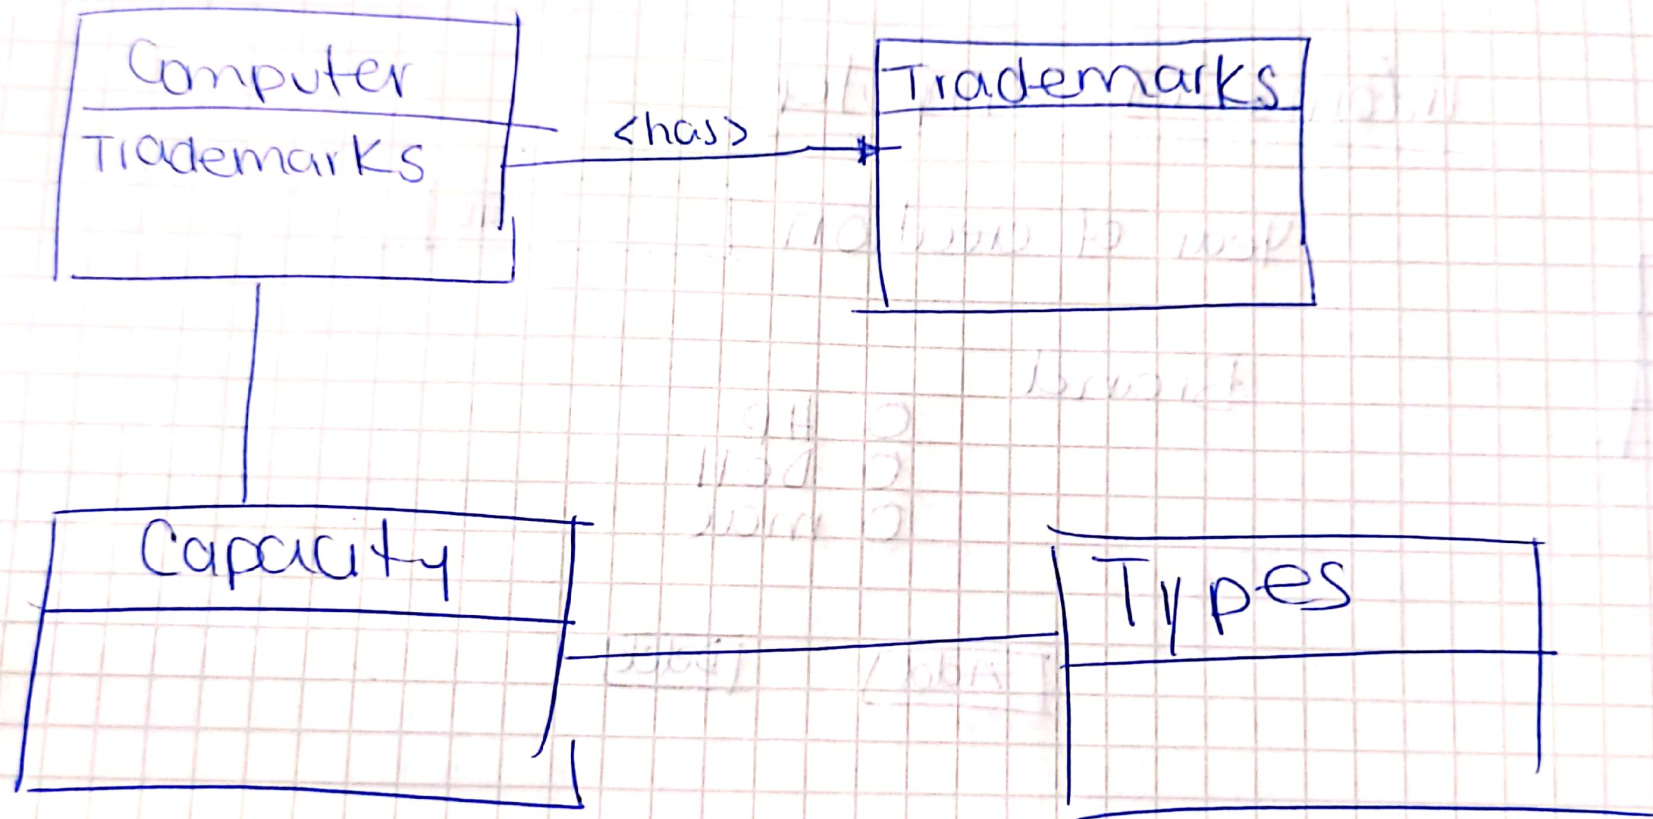 Computer
Trademarks
<has>
Trademarks
Capacity
Types